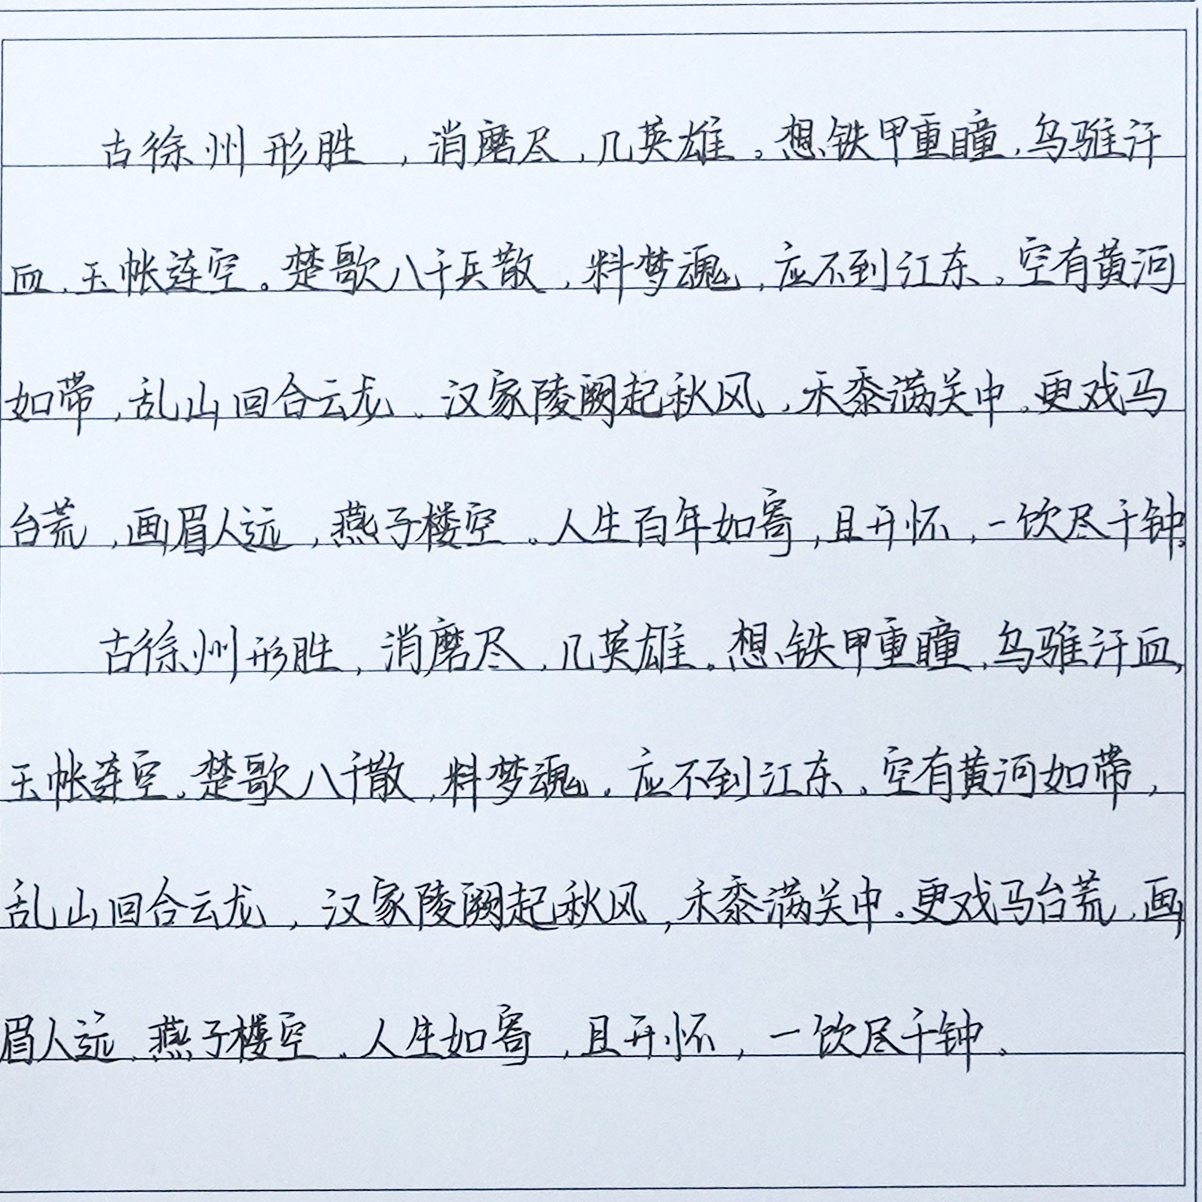 古徐州形胜，消磨尽，几英雄。想铁甲重瞳，乌骓汗
血，玉帐连空。楚歌八千兵散，料梦魂，应不到江东。空有黄河
如带，乱山回合云龙。汉家陵阙起秋风，禾黍满关中。更戏马
台荒，画眉人远，燕子楼空。人生百年如寄，且开怀，一饮尽千钟。
古徐州形胜，消磨尽，几英雄。想铁甲重瞳，乌骓汗血，
玉帐连空。楚歌八千散，料梦魂。应不到江东。空有黄河如带，
乱山回合云龙，汉家陵阙起秋风，禾黍满关中。更戏马台荒，画
眉人远，燕子楼空。人生如寄，且开怀，一饮尽千钟。